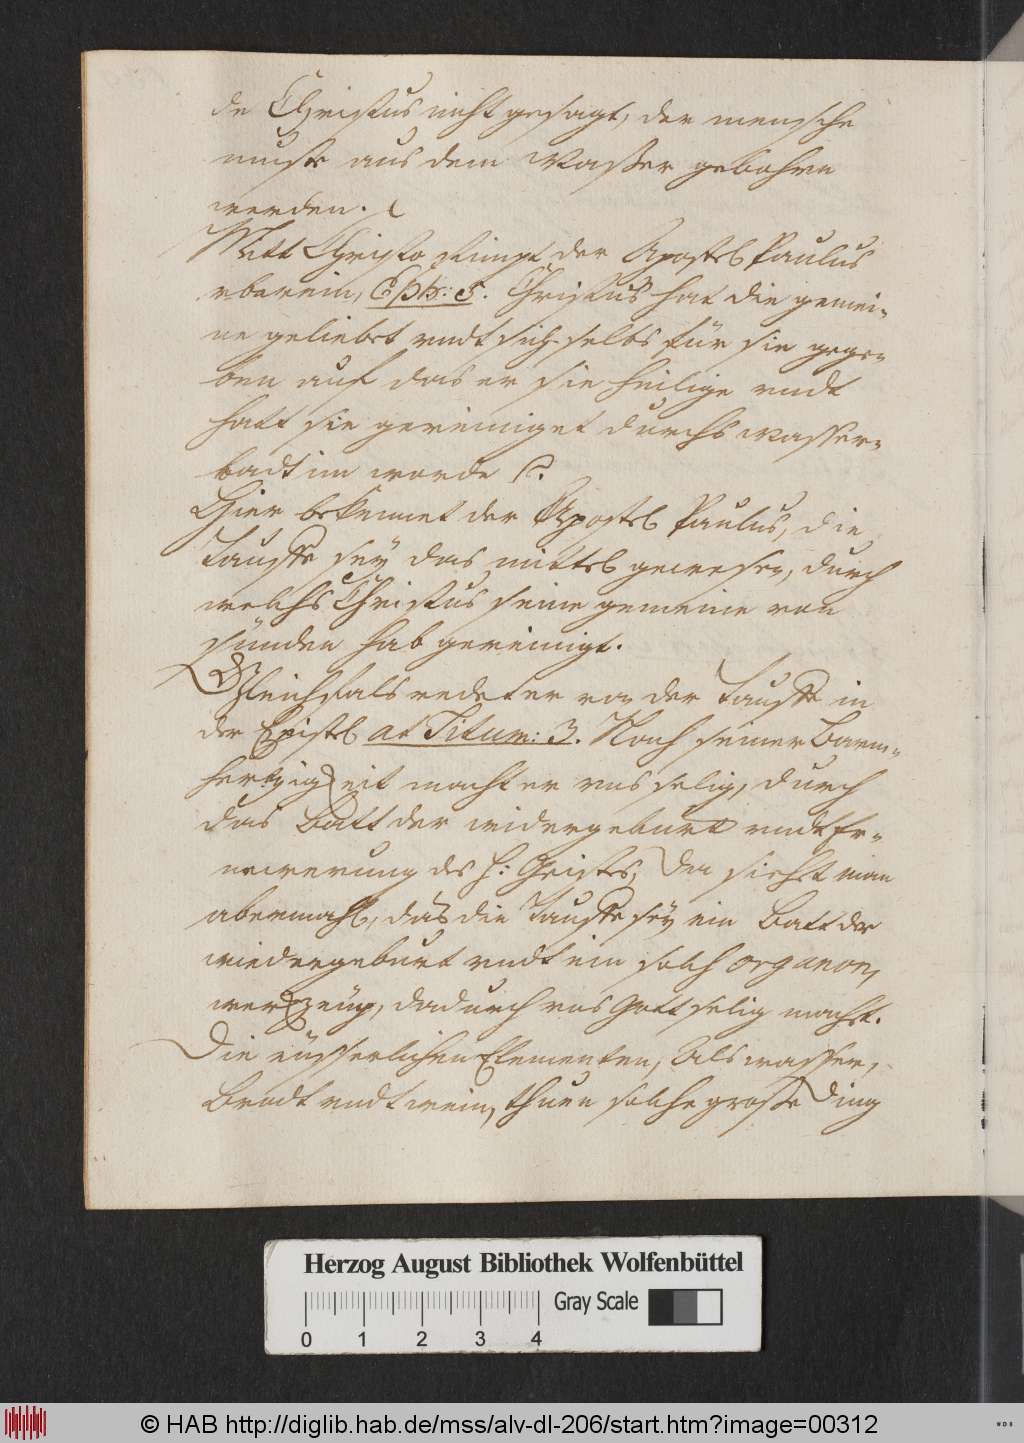 de Christus nicht gesagt, der mensche
muste aus dem Wasser gebohren
werden.
Mitt Christo stimpt der Apostel Paulus
vberein, Eph: 5. Christus hat die gemei-
ne geliebet undt sich selbs für sie gege-
ben auf das er sie heilige undt
hatt sie gereiniget durchs wasser-
badt im worde
Hier bekennet der Apostel Paulus, die
Tauffe sey das mittel gewesen, durch
welchs Christus seine gemeine von
sünden hab gereinigt.
Gleichfals redet er von der Tauffe in
der Epistel at Titum: 3. Nach seiner Barm-
hertzigkeit macht er uns selig, durch
das Batt der widergeburt undt Er-
newerung des h: Geistes, Da sieht man
abermahl, das die Tauffe sey ein Batt der
wiedergeburt undt ein solch organon,
werkzeüg, dadurch uns Gott selig macht.
Die eüsserlichen Elementen, Als wasser,
Brodt undt wein, thuen solche grosse Ding
Herzog August Bibliothek Wolfenbüttel
Gray Scale
0 1 2 3 4
© HAB http://diglib.hab.de/mss/alv-dl-206/start.htm?image=00312